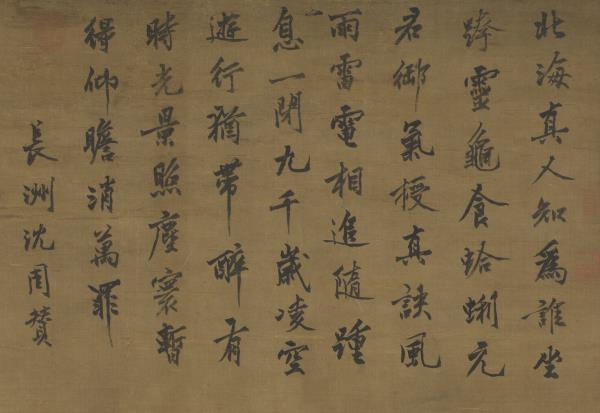 北海真人知為誰坐
跨靈龜食蛤蜊元
君御氣授真訣風
雨雷電相進隨踵
息一閉九千歲凌空
遊行猶帶醉有
時光景照塵寰暫
得仰瞻消萬罪
長洲沈周贊